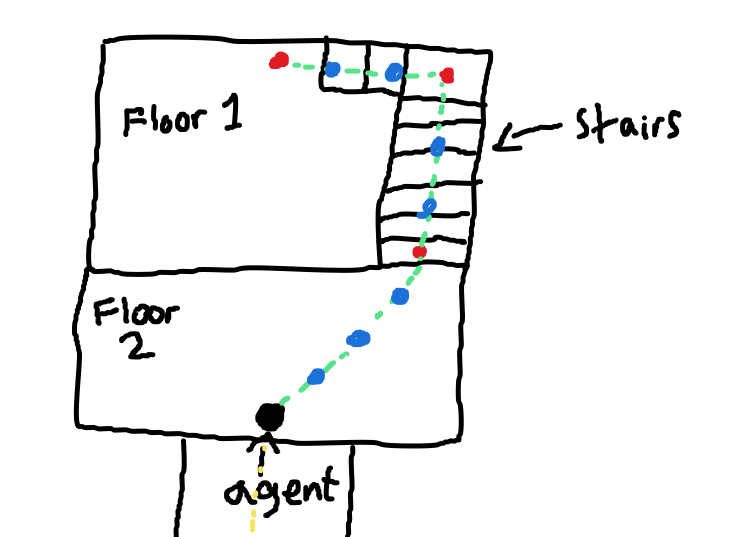 Floor 1
stairs
Floor
2
agent